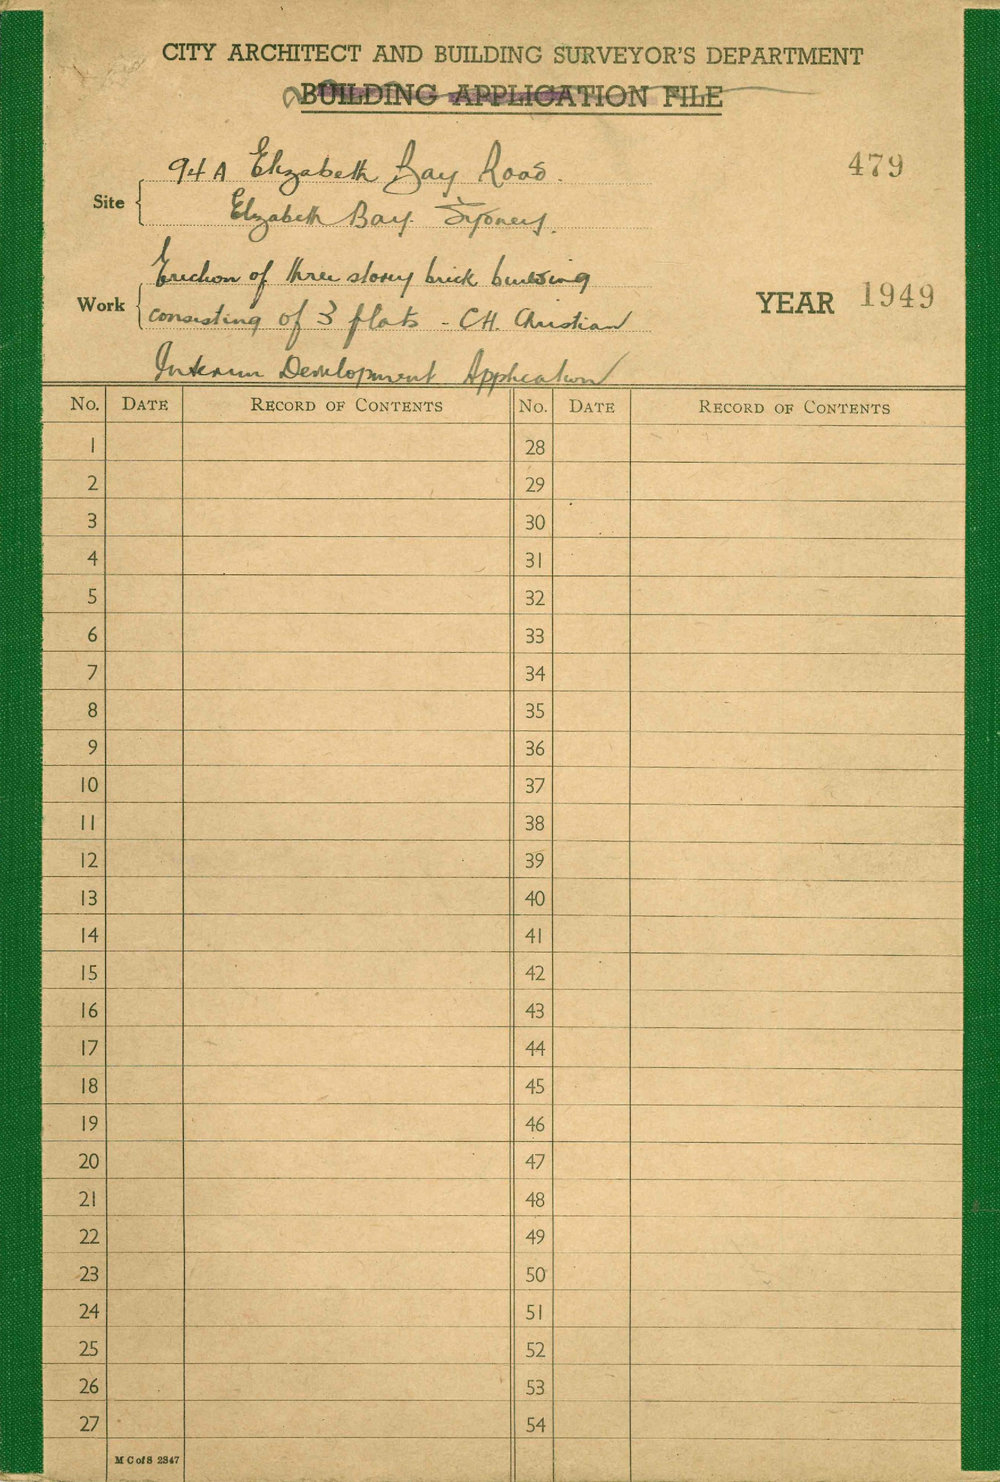 CITY ARCHITECT AND BUILDING SURVEYOR'S DEPARTMENT
BUILDING APPLICATION FILE
479
Site
94A Elizabeth Bay Road.
Elizabeth Bay. Sydney.
Work
Erection of three storey brick building
consisting of 3 flats - C.H. Christian
YEAR 1949
Interim Development Application
No. DATE RECORD OF CONTENTS No. DATE RECORD OF CONTENTS
1 28
2 29
3 30
4 31
5 32
6 33
7 34
8 35
9 36
10 37
11 38
12 39
13 40
14 41
15 42
16 43
17 44
18 45
19 46
20 47
21 48
22 49
23 50
24 51
25 52
26 53
27 54
M C of S 2347